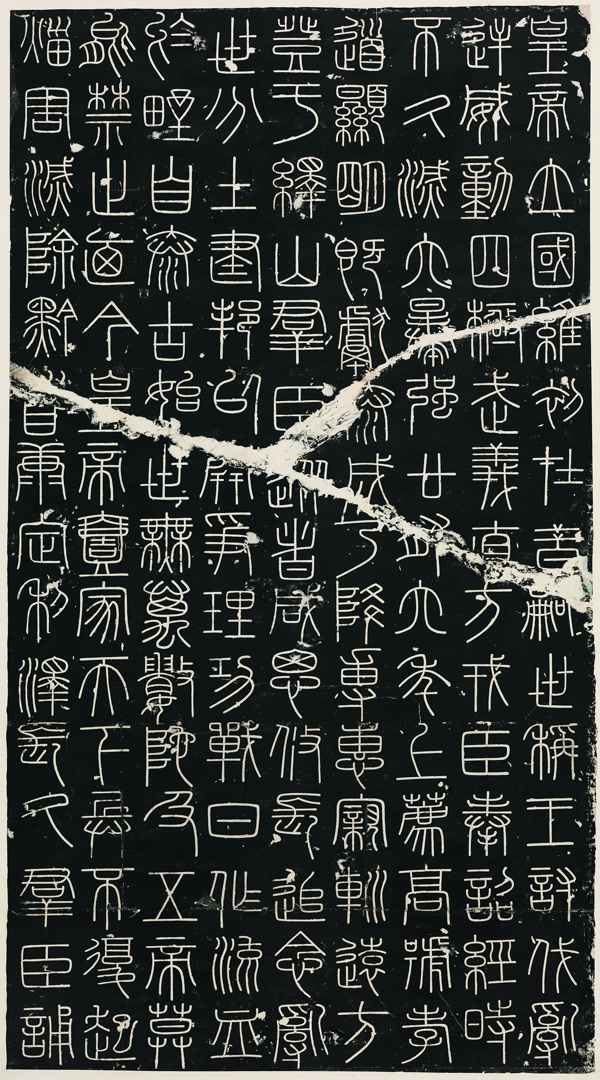 皇帝立國維初在昔嗣世稱王討伐亂
逆威動四極武義直方戎臣奉詔經時
不久滅六暴強廿有六年上薦高號孝
道顯明既獻泰成乃降專惠寴巡遠方
登于繹山群臣從者咸思攸長追念亂
世分土建邦以開爭理功戰日作流血
於野自泰古始世無萬數陀及五帝莫
能禁止廼今皇帝壹家天下兵不復起
災害滅除黔首康定利澤長久群臣誦